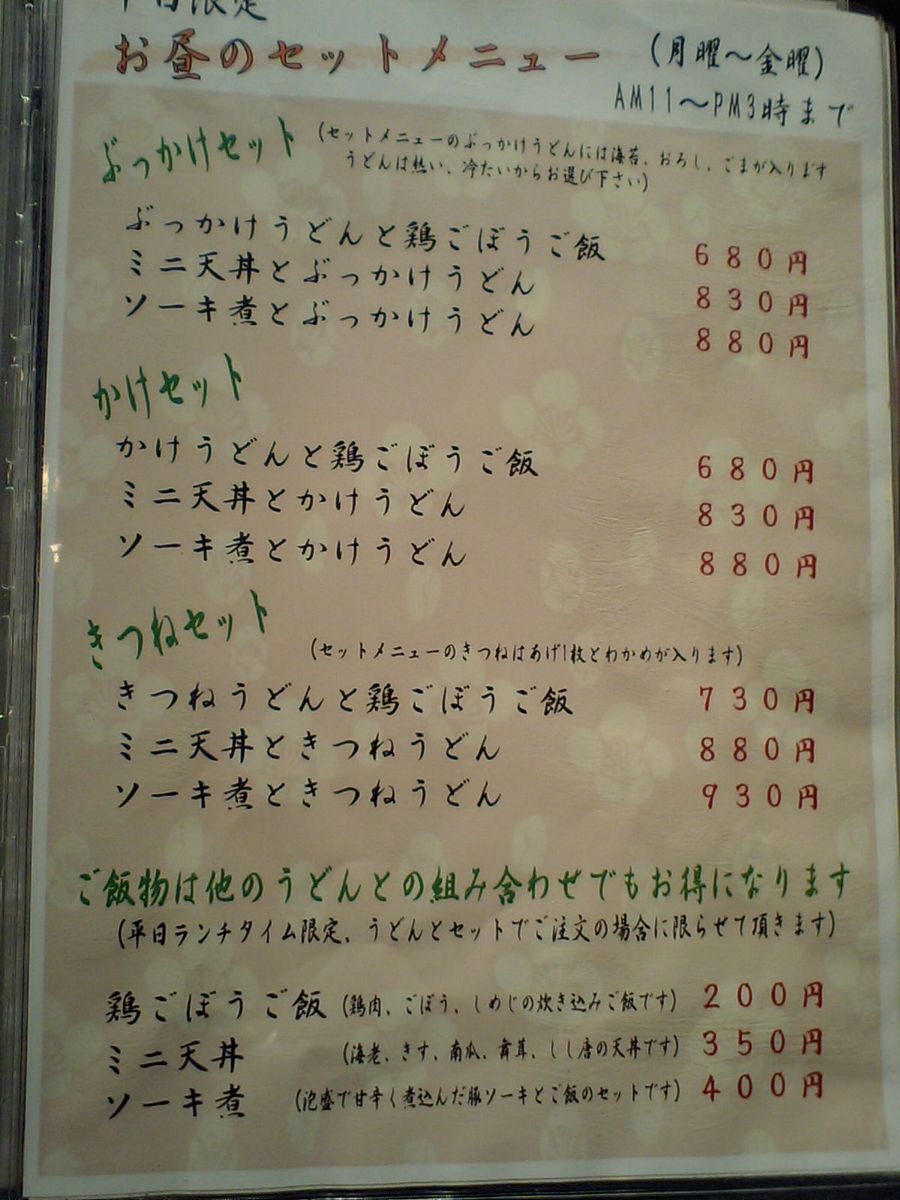 平日限定
お昼のセットメニュー (月曜〜金曜)
AM11〜PM3時まで
ぶっかけセット (セットメニューのぶっかけうどんには海苔、おろし、ごまが入ります
うどんは熱い、冷たいからお選び下さい)
ぶっかけうどんと鶏ごぼうご飯 680円
ミニ天丼とぶっかけうどん 830円
ソーキ煮とぶっかけうどん 880円
かけセット
かけうどんと鶏ごぼうご飯 680円
ミニ天丼とかけうどん 830円
ソーキ煮とかけうどん 880円
きつねセット
(セットメニューのきつねはあげ1枚とわかめが入ります)
きつねうどんと鶏ごぼうご飯 730円
ミニ天丼ときつねうどん 880円
ソーキ煮ときつねうどん 930円
ご飯物は他のうどんとの組み合わせでもお得になります
(平日ランチタイム限定、うどんとセットでご注文の場合に限らせて頂きます)
鶏ごぼうご飯 (鶏肉、ごぼう、しめじの炊き込みご飯です) 200円
ミニ天丼 (海老、きす、南瓜、舞茸、しし唐の天丼です) 350円
ソーキ煮 (泡盛で甘辛く煮込んだ豚ソーキとご飯のセットです) 400円